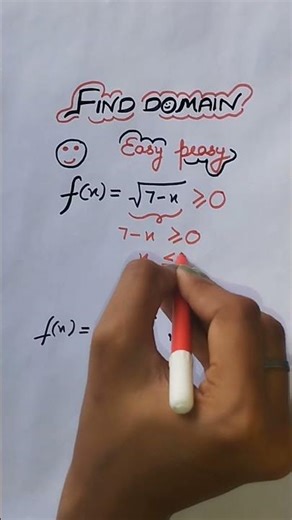 FIND DOMAIN
Easy peasy
f(x) = √7-x ≥0
7-x ≥0
x ≤
f(x) =